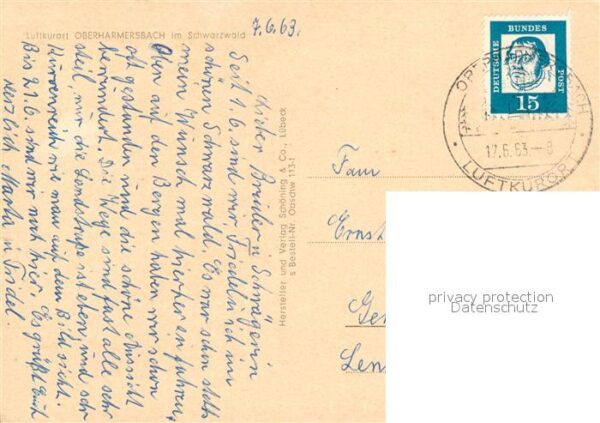 Luftkurort OBERHARMERSBACH im Schwarzwald
7.6.63.
Lieber Bruder u. Schwägerin
Seit 1.6. sind wir, Friedel u. ich im
schönen Schwarzwald. Es war schon stets
mein Wunsch mal hierher zu fahren,
Oben auf den Bergen haben wir schon
oft gestanden und die schöne Aussicht
bewundert. Die Wege sind fast alle sehr
steil, nur die Landstraße ist eben, und sehr
kurvenreich wie man auf dem Bild sieht.
Bis 21.6. sind wir noch hier. Es grüßt Euch
herzlich Martha u. Friedel.
Hersteller und Verlag Schöning & Co., Lübeck
s Bestell-Nr. Oasdw 113-1
DEUTSCHE BUNDES POST
15
17.6.63.-8
LUFTKURORT
Fam
Ernst
Ge
Len
privacy protection
Datenschutz